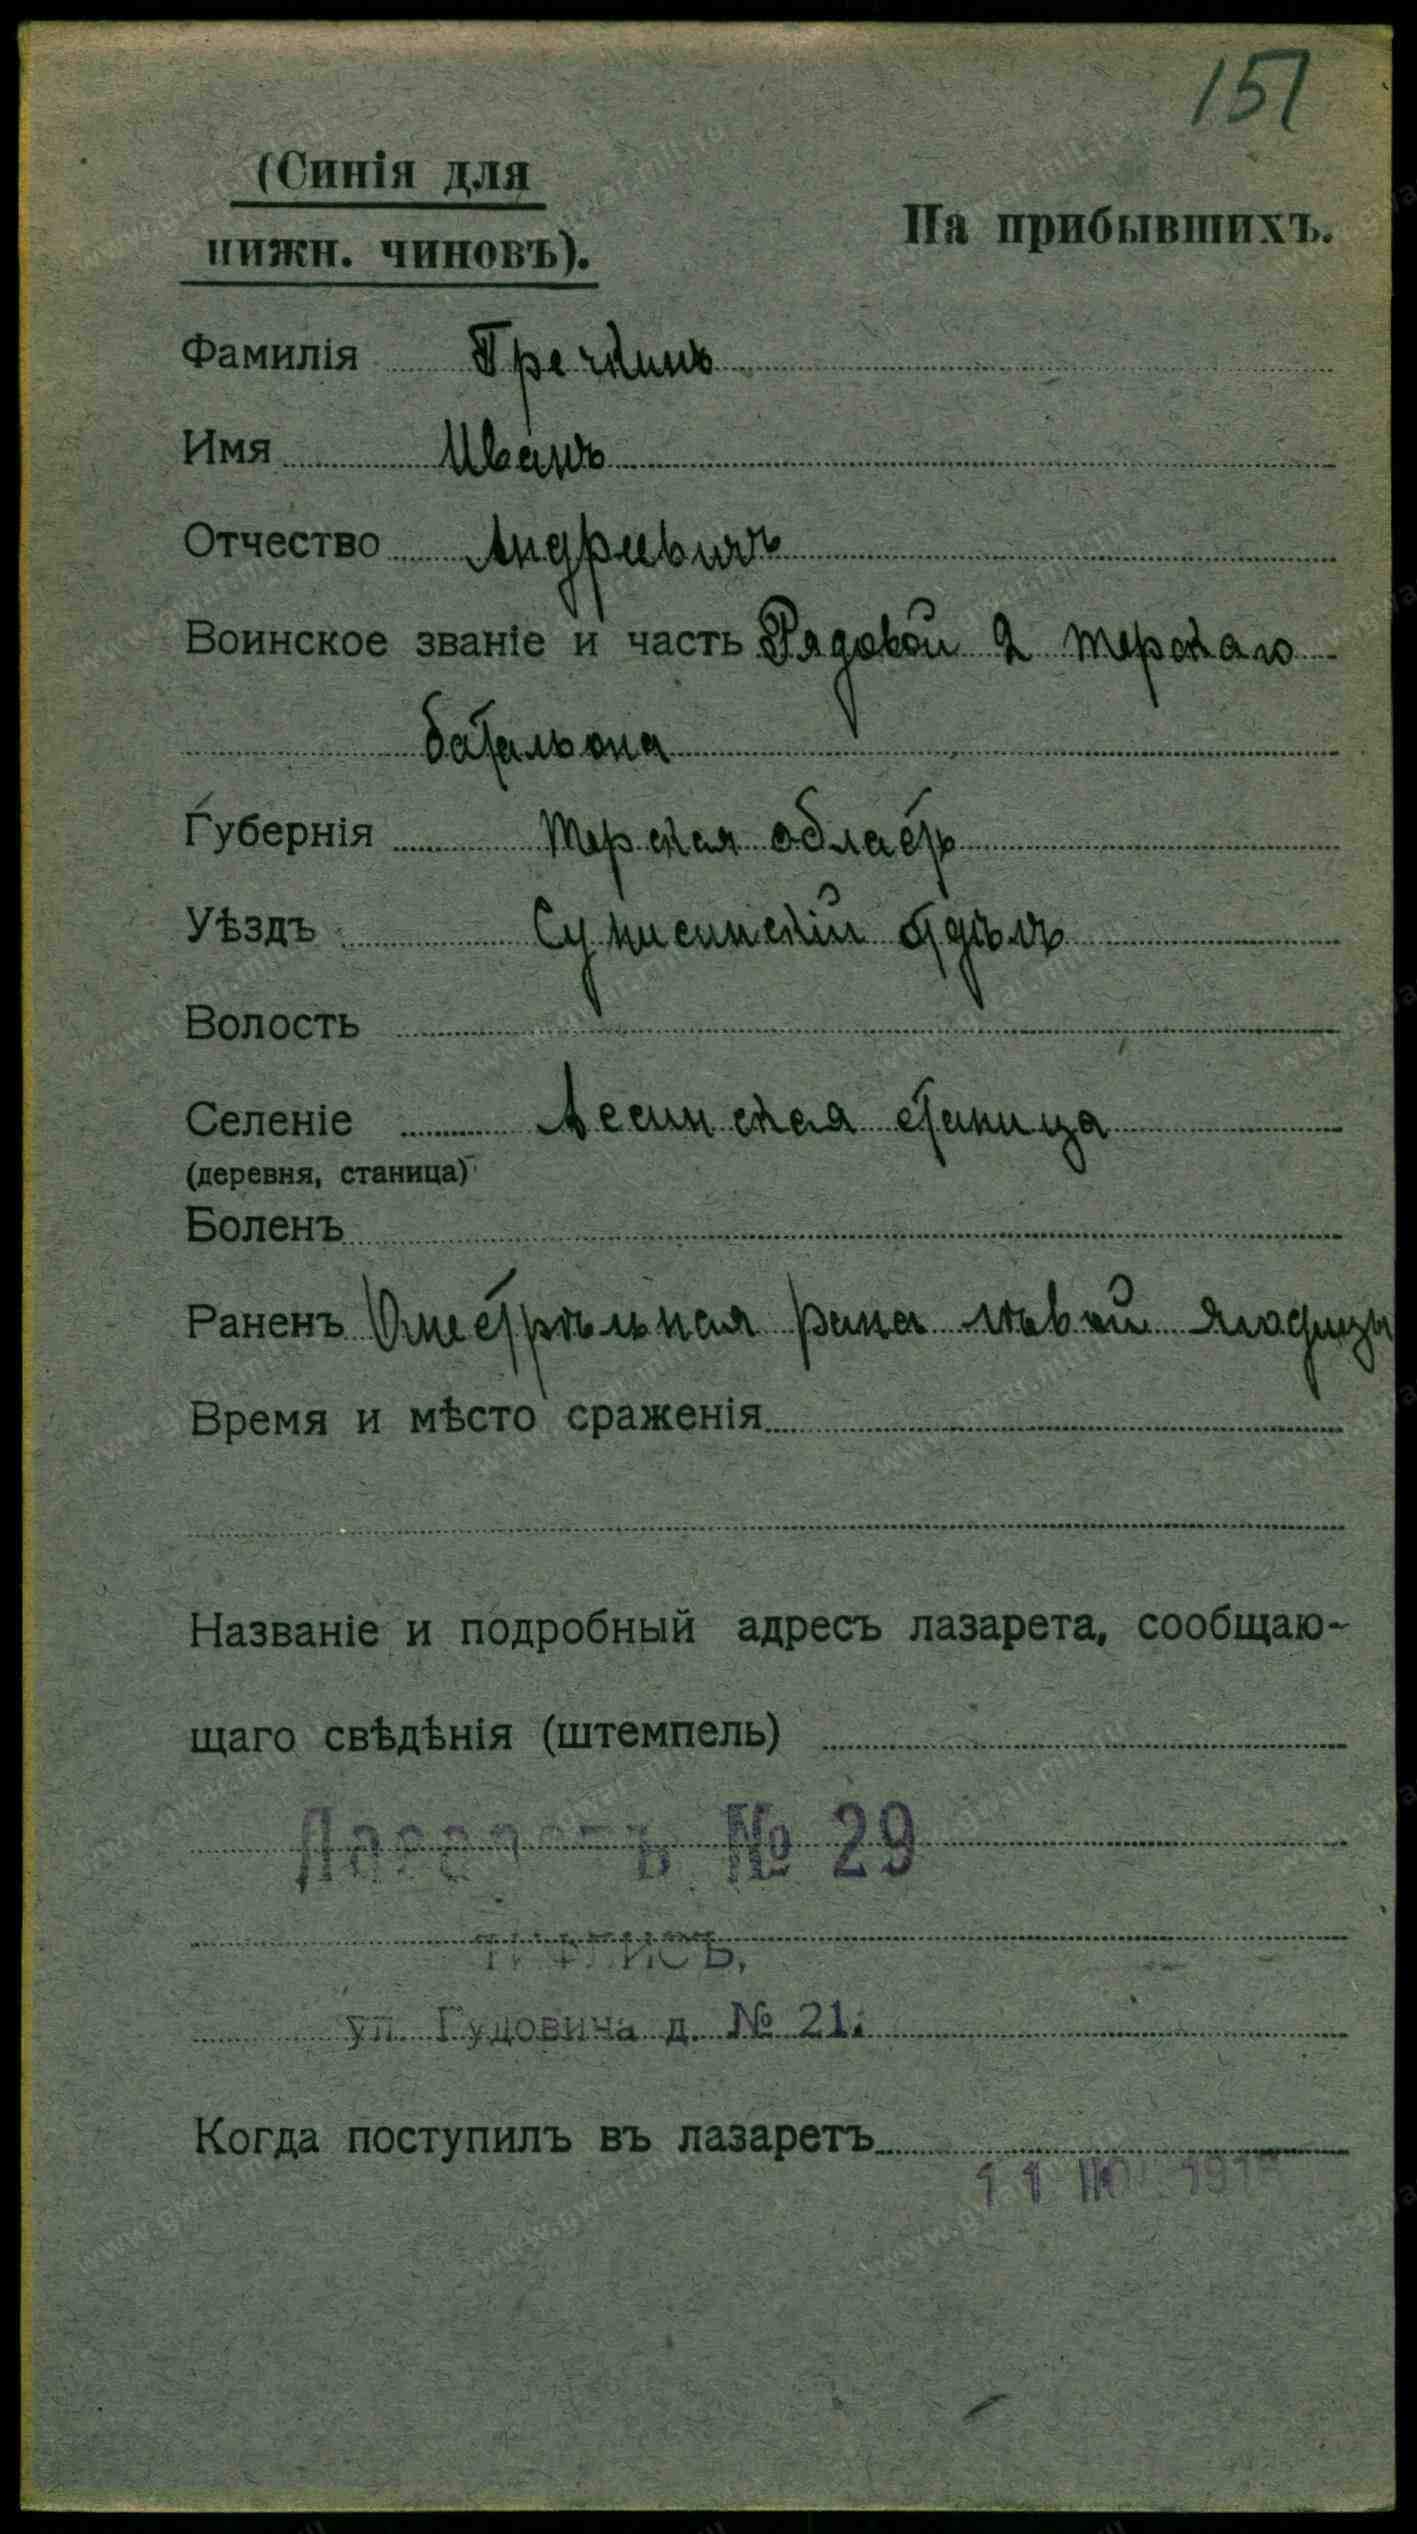 151
(Синія для
нижн. чиновъ).
На прибывшихъ.
Фамилія Гречкинъ
Имя Иванъ
Отчество Андреевичъ
Воинское званіе и часть Рядовой 2 терскаго
батальона
Губернія Терская область
Уѣздъ Сунженскій отдѣлъ
Волость
Селеніе Ассинская станица
(деревня, станица)
Боленъ
Раненъ Огнестрѣльная рана лѣвой ягодицы
Время и мѣсто сраженія
Названіе и подробный адресъ лазарета, сообщаю-
щаго свѣдѣнія (штемпель)
Лазаретъ № 29
ТИФЛИСЪ,
ул. Гудовича д. № 21.
Когда поступилъ въ лазаретъ
11